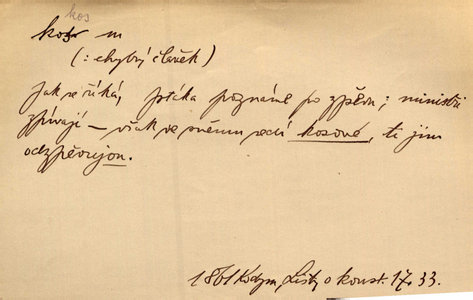 kos
kos m
(: chytrý člověk)
Jak se říká, ptáka poznáme po zpěvu; ministři
zpívají – však ve sněmu sedí kosové, ti jim
odzpěvujou.
1861 Kodym, Listy o konst. 17. 33.